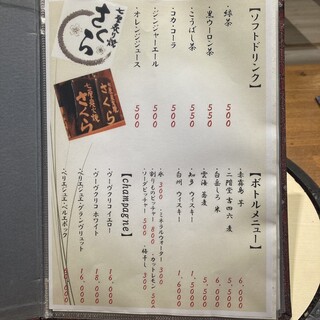 七度炙り焼
さくら
さくら
【ソフトドリンク】
・緑茶 500
・黒ウーロン茶 500
・こうばし茶 550
・コカ・コーラ 500
・ジンジャーエール 500
・オレンジジュース 500
【ボトルメニュー】
・赤霧島 芋
・二階堂 吉四六 麦
・白岳しろ 米
・雲海 蕎麦
・知多 ウィスキー
・白州 ウィスキー
・氷 300 ・ミネラルウォーター 300
・割りもちピッチャー 800 ・カットレモン
・ソーダピッチャー 500 ・梅干し
【champagne】
・ヴーヴクリコ イエロー 16,000
・ヴーヴクリコ ホワイト 18,000
・ペリエジュエ・グランブリュット 16,000
・ペリエジュエ・ベルエポック